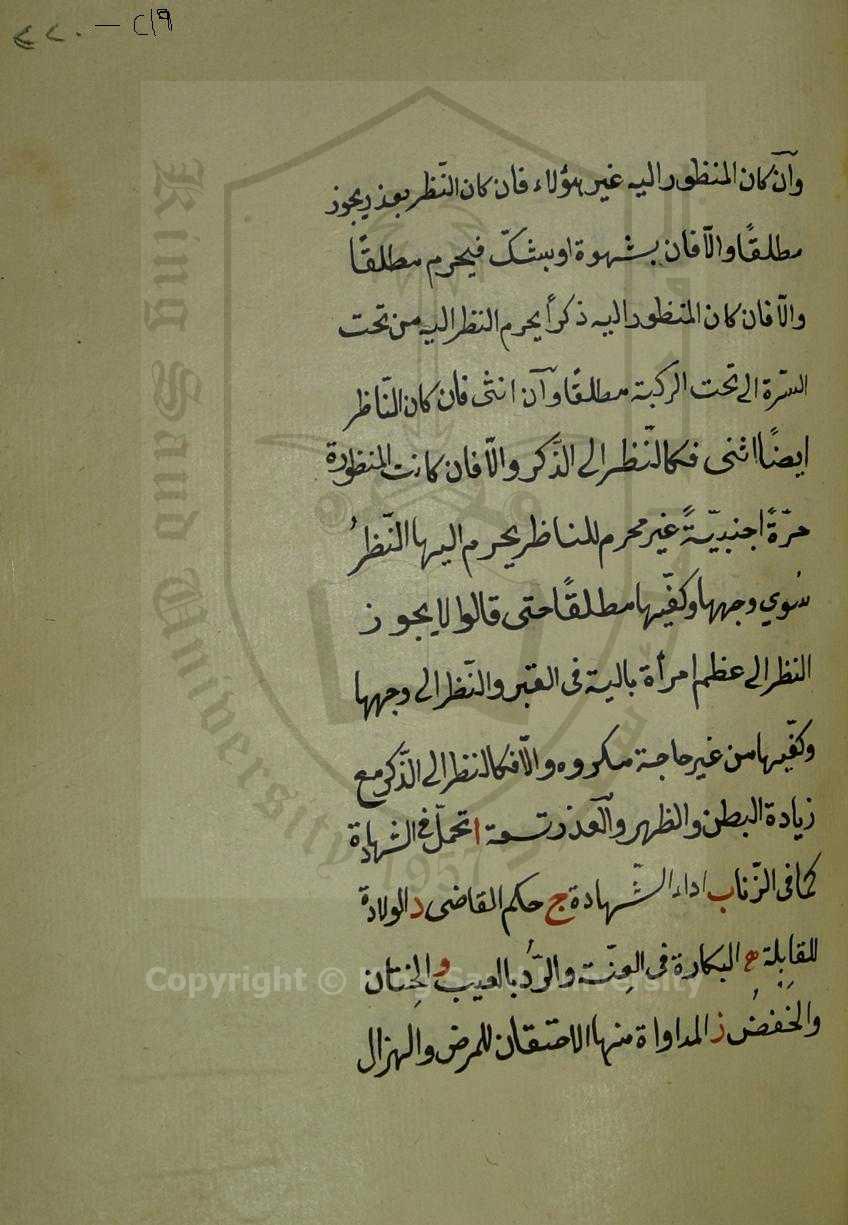 ٢٢٠ — ٢١٩
وآن كان المنظور اليه غير هؤلاء فان كان النّظر بعذر يجوز
مطلقًا والّا فان بشهوة او بشكّ فيحرم مطلقًا
والّا فان كان المنظور اليه ذكراً يحرم النظر اليه من تحت
السّرة الى تحت الركبة مطلقًا وآن انثى فان كان النّاظر
ايضًا انثى فكالنّظر الى الذّكر والّا فان كانت المنظورة
حرّةً اجنبيّةً غير محرم للناظر يحرم اليها النّظرُ
سُوي وجهها وكفّيها مطلقًا حتى قالوا لا يجوز
النظر الى عظم امرأة بالية فى القبر والنّظر الى وجهها
وكفّيها من غير حاجة مكروه والّا فكالنظر الى الذّكر مع
زيادة البطن والظهر والعذر تسعة ا تحمل فى الشهادة
كما فى الزّنا ب اداء الشّهادة ج حكم القاضى د الولادة
للقابلة ه البكارة فى العنّة والرّد بالعيب و الختان
والخفض ز المداواة منها الاحتقان للمرض والهزال
King Saud University
1957
Copyright © King Saud University